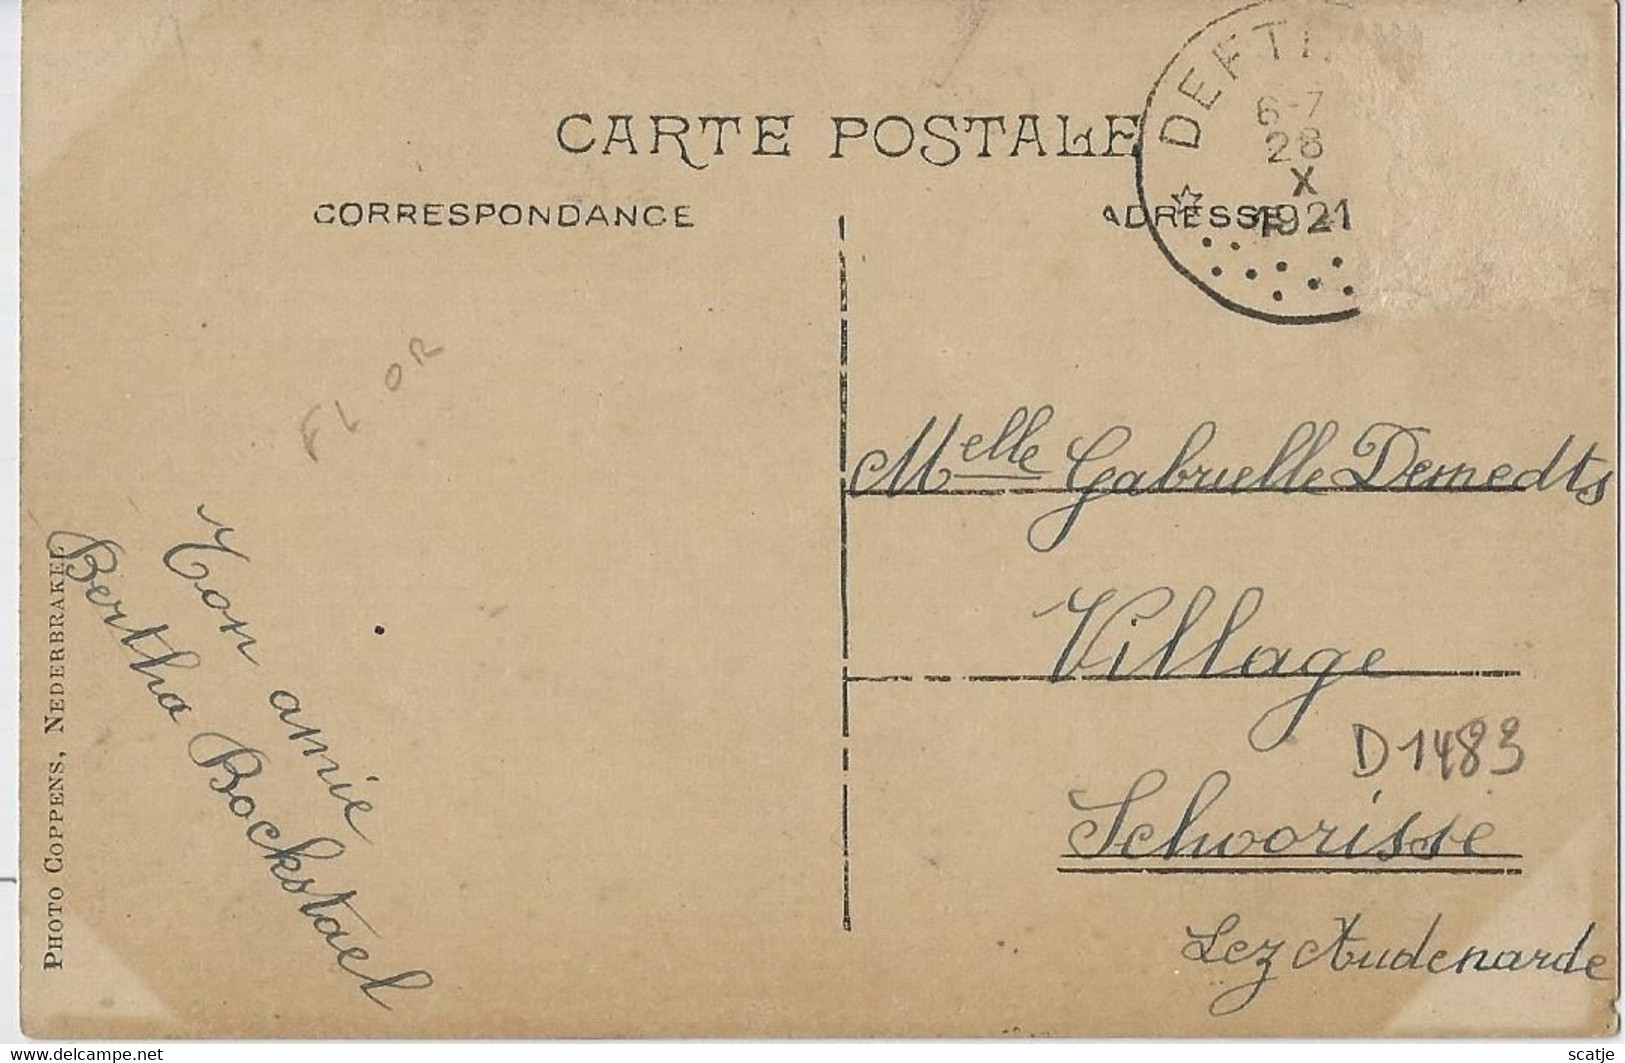 CARTE POSTALE
CORRESPONDANCE
ADRESSE
DEFTI
6-7
28
X
1921
FLOR
Melle Gabrielle Demedts
Village
D1483
Schoorisse
Lez Audenarde
Ton amie
Bertha Bockstael
PHOTO COPPENS, NEDERBRAKEL
https://www.delcampe.net
scatje